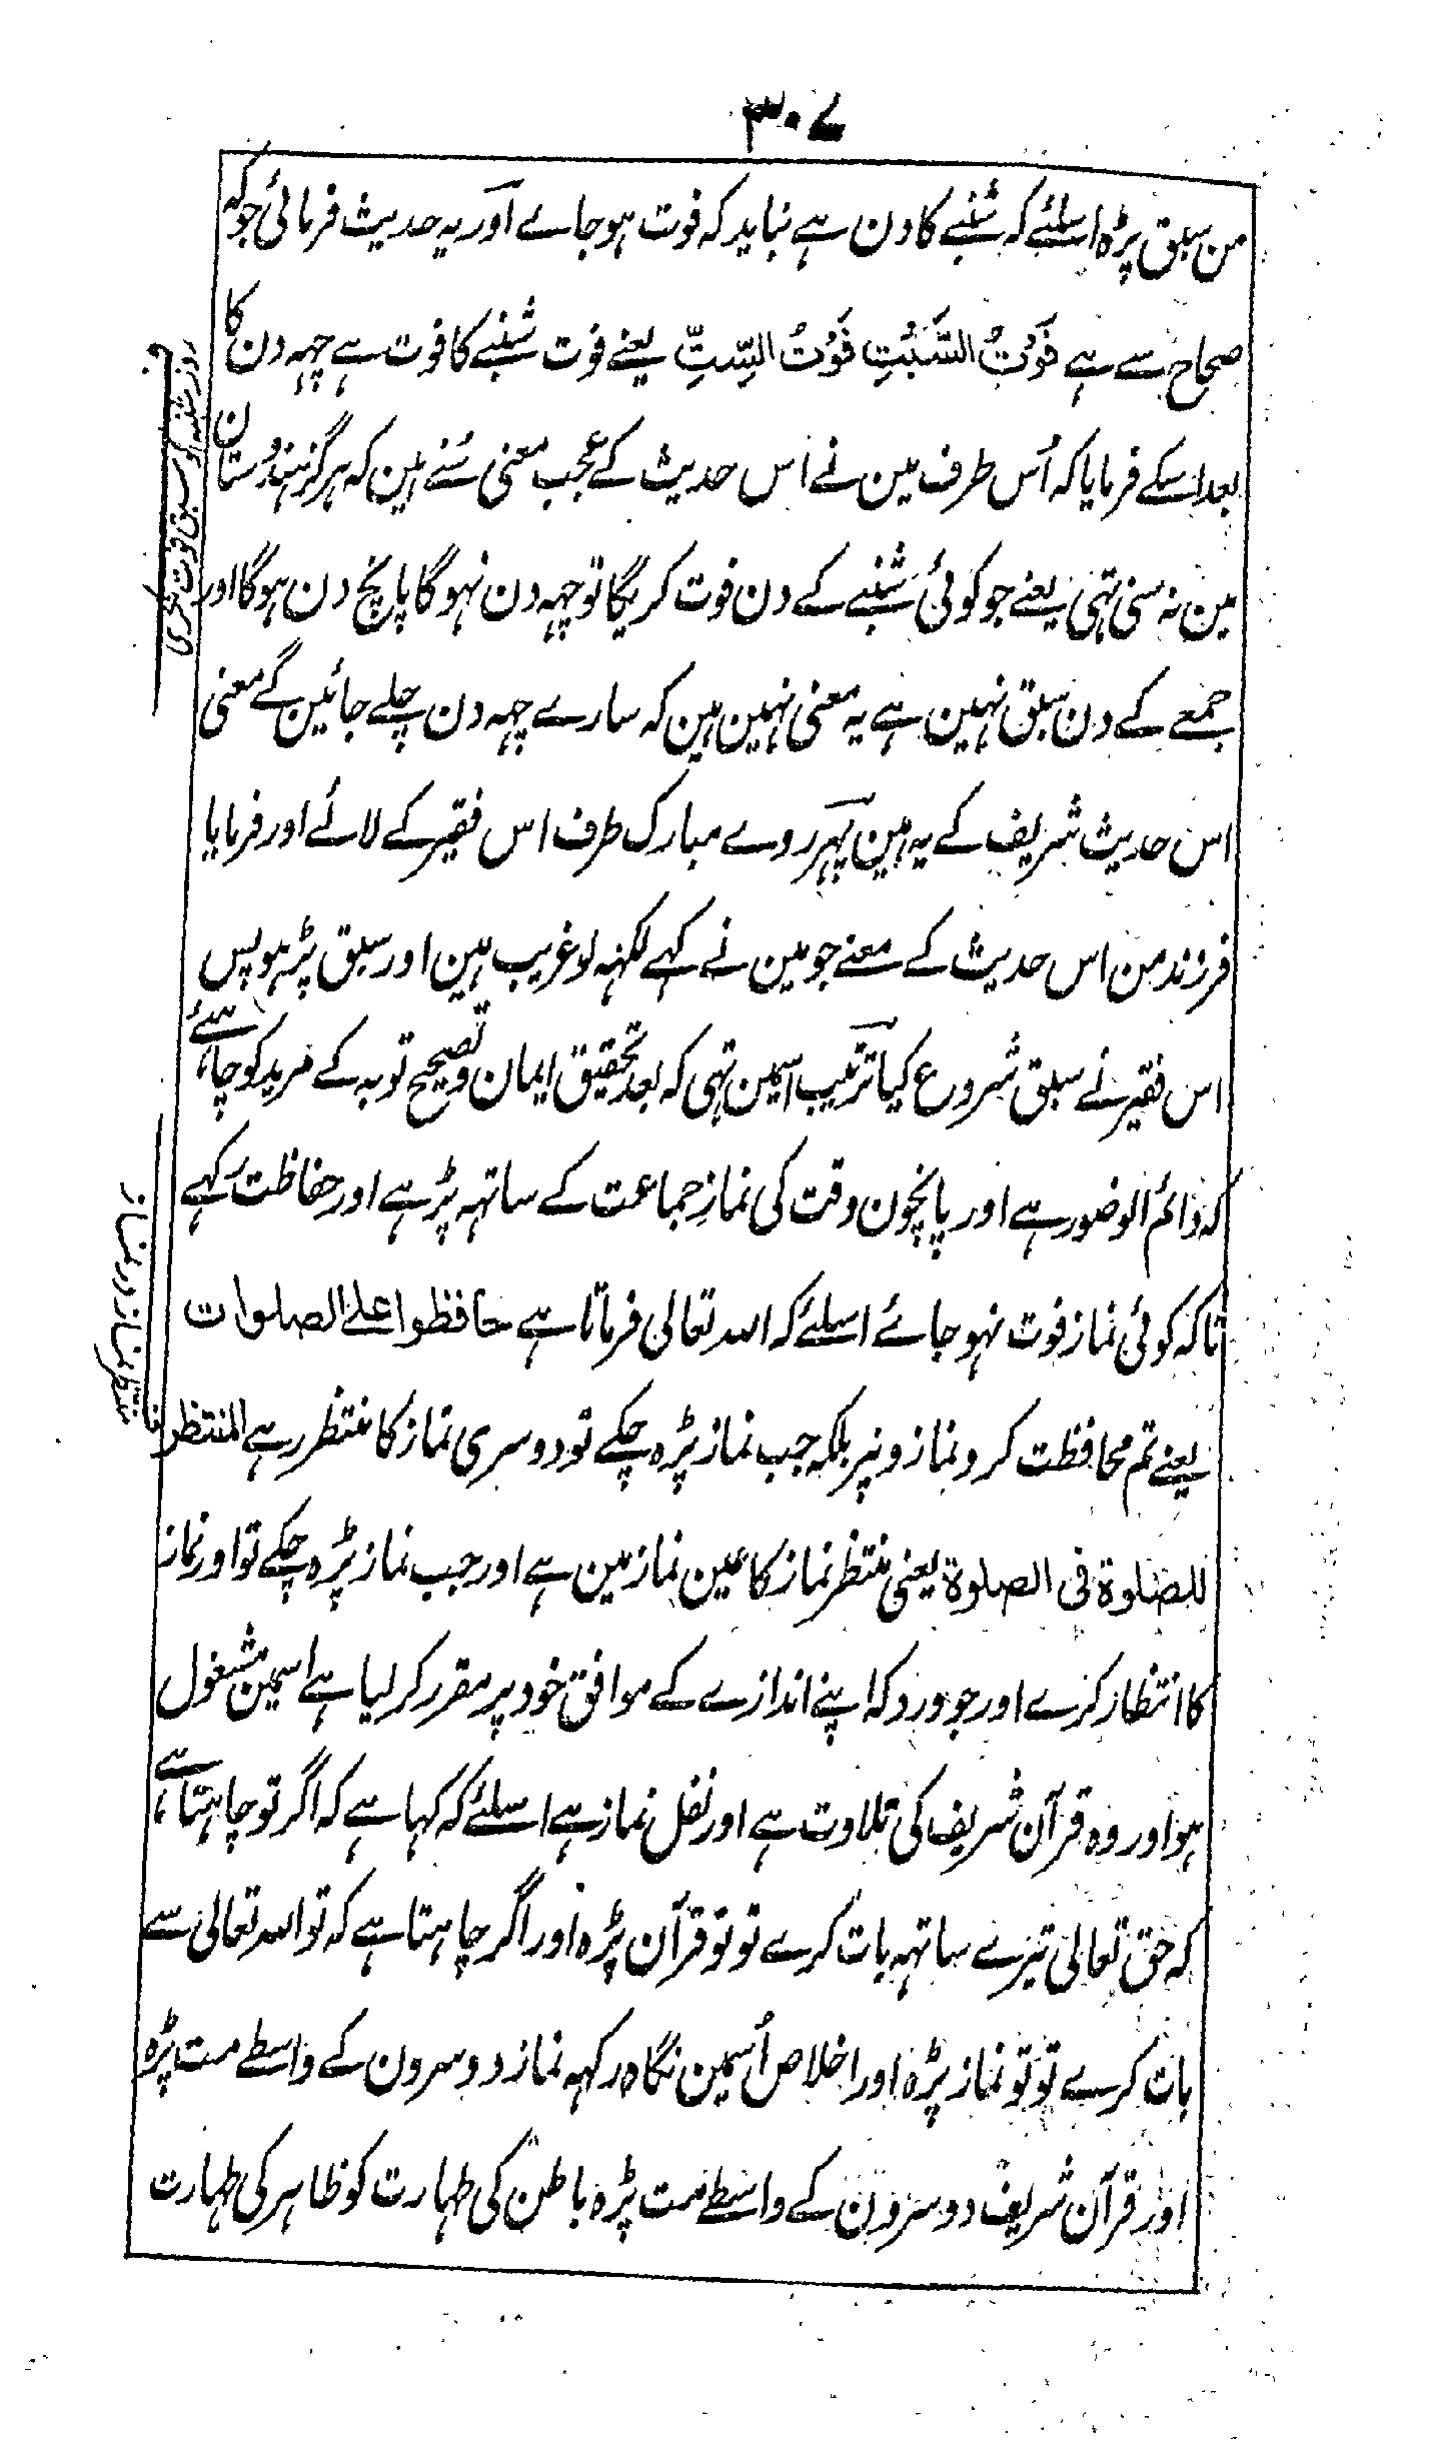 ۳۰۷
من سبق پڑہ اسلئے کہ شنبے کا دن ہے نباید کہ فوت ہو جاے اور یہ حدیث فرمائی جو کہ
صحاح سے ہے فَوْتُ السَّبْتِ فَوْتُ السِّتِّ یعنے فوت شنبے کا فوت ہے چہہ دن کا
بعد اسکے فرمایا کہ اُس طرف مین نے اس حدیث کے عجب معنی سُنے ہین کہ ہرگز ہندوستان
مین نہ سنی تہی یعنے جو کوئی شنبے کے دن فوت کریگا تو چہہ دن نہوگا پانچ دن ہوگا اور
جمعے کے دن سبق نہین ہے یہ معنی نہین ہین کہ سارے چہہ دن چلے جائین گے معنی
اس حدیث شریف کے یہ ہین پہر روے مبارک طرف اس فقیر کے لائے اور فرمایا
فرزند من اس حدیث کے معنے جو مین نے کہے لکہہ لو غریب ہین اور سبق پڑہو پس
اس فقیر نے سبق شروع کیا ترتیب اسمین تہی کہ بعد تحقیق ایمان و تصحیح توبہ کے مرید کو چاہئے
کہ دائم الوضو رہے اور پانچون وقت کی نماز جماعت کے ساتہہ پڑہے اور حفاظت رکہے
تاکہ کوئی نماز فوت نہو جائے اسلئے کہ اللہ تعالی فرماتا ہے حافظوا علے الصلوات
یعنے تم محافظت کرو نمازونپر بلکہ جب نماز پڑہ چکے تو دوسری نماز کا منتظر رہے المنتظر
للصلوۃ فی الصلوۃ یعنی منتظر نماز کا عین نماز مین ہے اور جب نماز پڑہ چکے تو اور نماز
کا انتظار کرے اور جو ورد کہ اپنے اندازے کے موافق خود پر مقرر کر لیا ہے اسمین مشغول
ہو اور وہ قرآن شریف کی تلاوت ہے اور نفل نماز ہے اسلئے کہ کہا ہے کہ اگر تو چاہتا ہے
کہ حق تعالی تیرے ساتہہ بات کرے تو تو قرآن پڑہ اور اگر چاہتا ہے کہ تو اللہ تعالی سے
بات کرے تو تو نماز پڑہ اور اخلاص اُسمین نگاہ رکہہ نماز دوسرون کے واسطے مت پڑہ
اور قرآن شریف دوسرون کے واسطے مت پڑہ باطن کی طہارت کو ظاہر کی طہارت
روز شنبہ کو سبق فوت نکرے
منتظر نماز در نماز